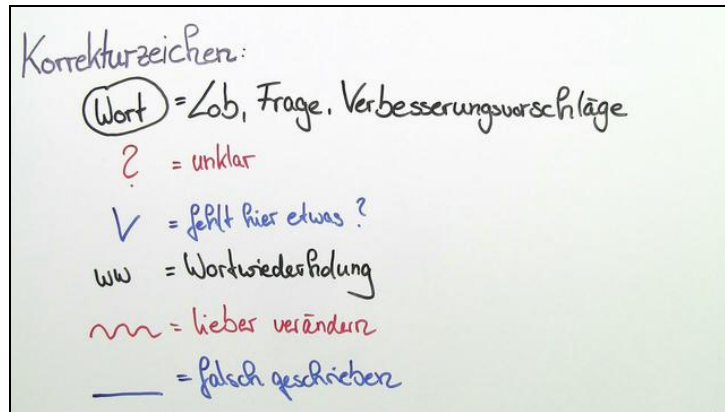 Korrekturzeichen:
Wort = Lob, Frage, Verbesserungsvorschläge
? = unklar
V = fehlt hier etwas?
ww = Wortwiederholung
= lieber verändern
= falsch geschrieben